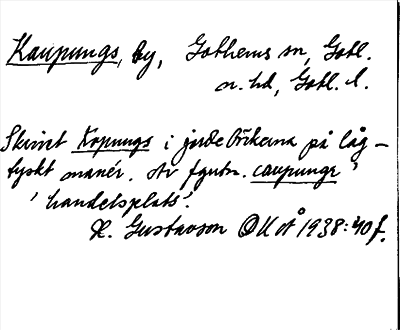 Kaupungs, by, Gothems sn, Gotl.
n. hd, Gotl. l.
Skrivet Kopungs i jordeböckerna på låg-
tyskt manér. Av fgutn. caupungr
'handelsplats'.
H. Gustavson GUÅ 1938:40 f.